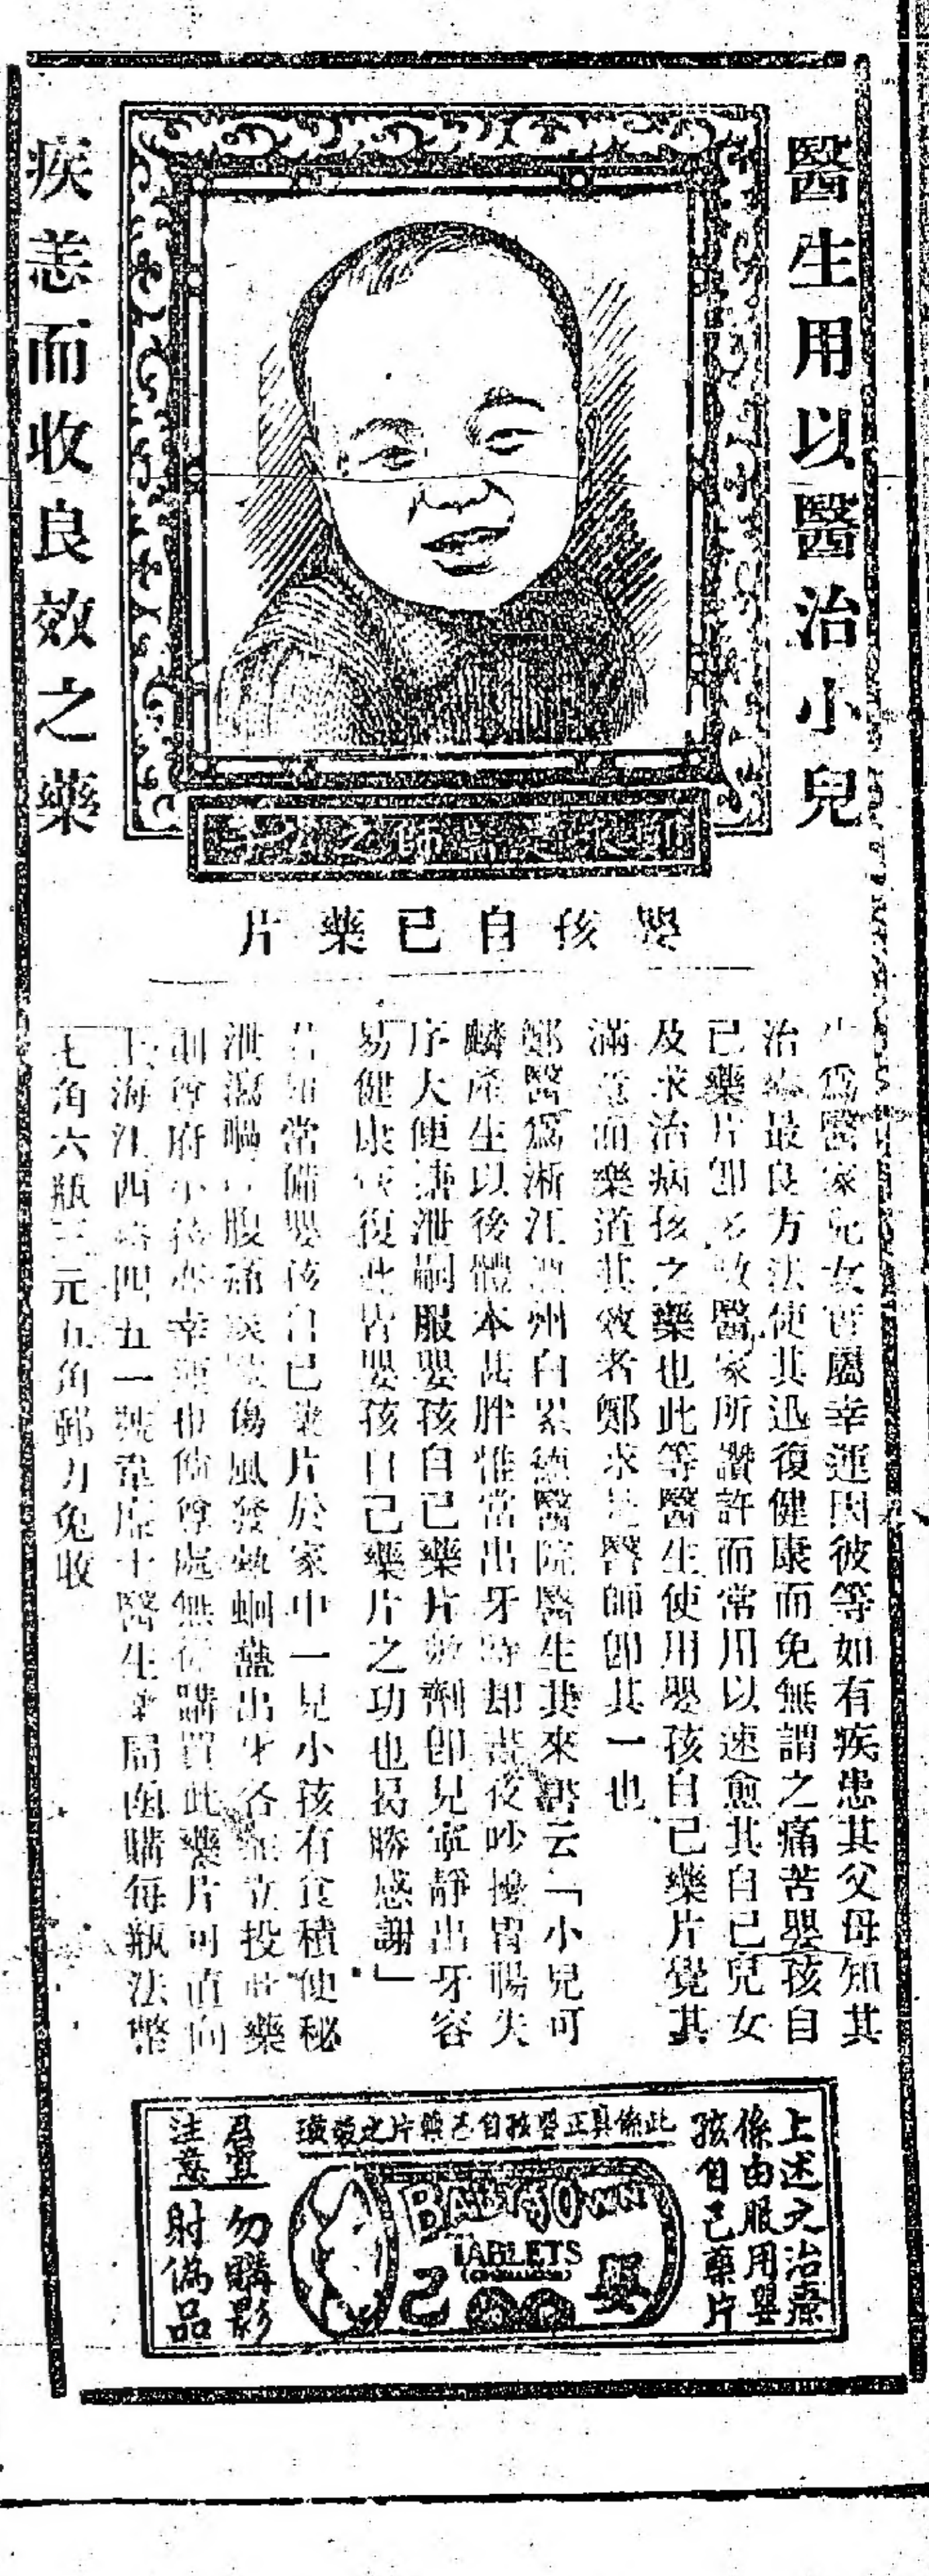 醫生用以醫治小兒
疾恙而收良效之藥
嬰孩自己藥片
生爲醫家兒女實屬幸運因彼等如有疾患其父母知其
治療最良方法使其迅復健康而免無謂之痛苦嬰孩自
己藥片卽多數醫家所讚許而常用以速愈其自己兒女
及求治病孩之藥也此等醫生使用嬰孩自己藥片覺其
滿意而樂道其效者鄭求是醫師卽其一也
鄭醫爲浙江溫州白累德醫院醫生其來書云「小兒可
麟產生以後體本甚胖惟當出牙時却晝夜吵擾胃腸失
序大便溏泄嗣服嬰孩自己藥片數劑卽見寧靜出牙容
易健康恢復此皆嬰孩自己藥片之功也曷勝感謝」
君如常備嬰孩自己藥片於家中一見小孩有食積便秘
泄瀉 腹痛 傷風發熱蛔蟲出牙各 立投此藥
則尊府小孩亦幸運也倘尊處無從購買此藥片可直向
上海江西路四五一號韋廉士醫生藥局函購每瓶法幣
七角六瓶三元五角郵力免收
上述之治療
係由服用嬰
孩自己藥片
此係眞正嬰孩自己藥片之
BABY'S OWN
TABLETS
嬰
己
君宜 勿購影
注意 射僞品